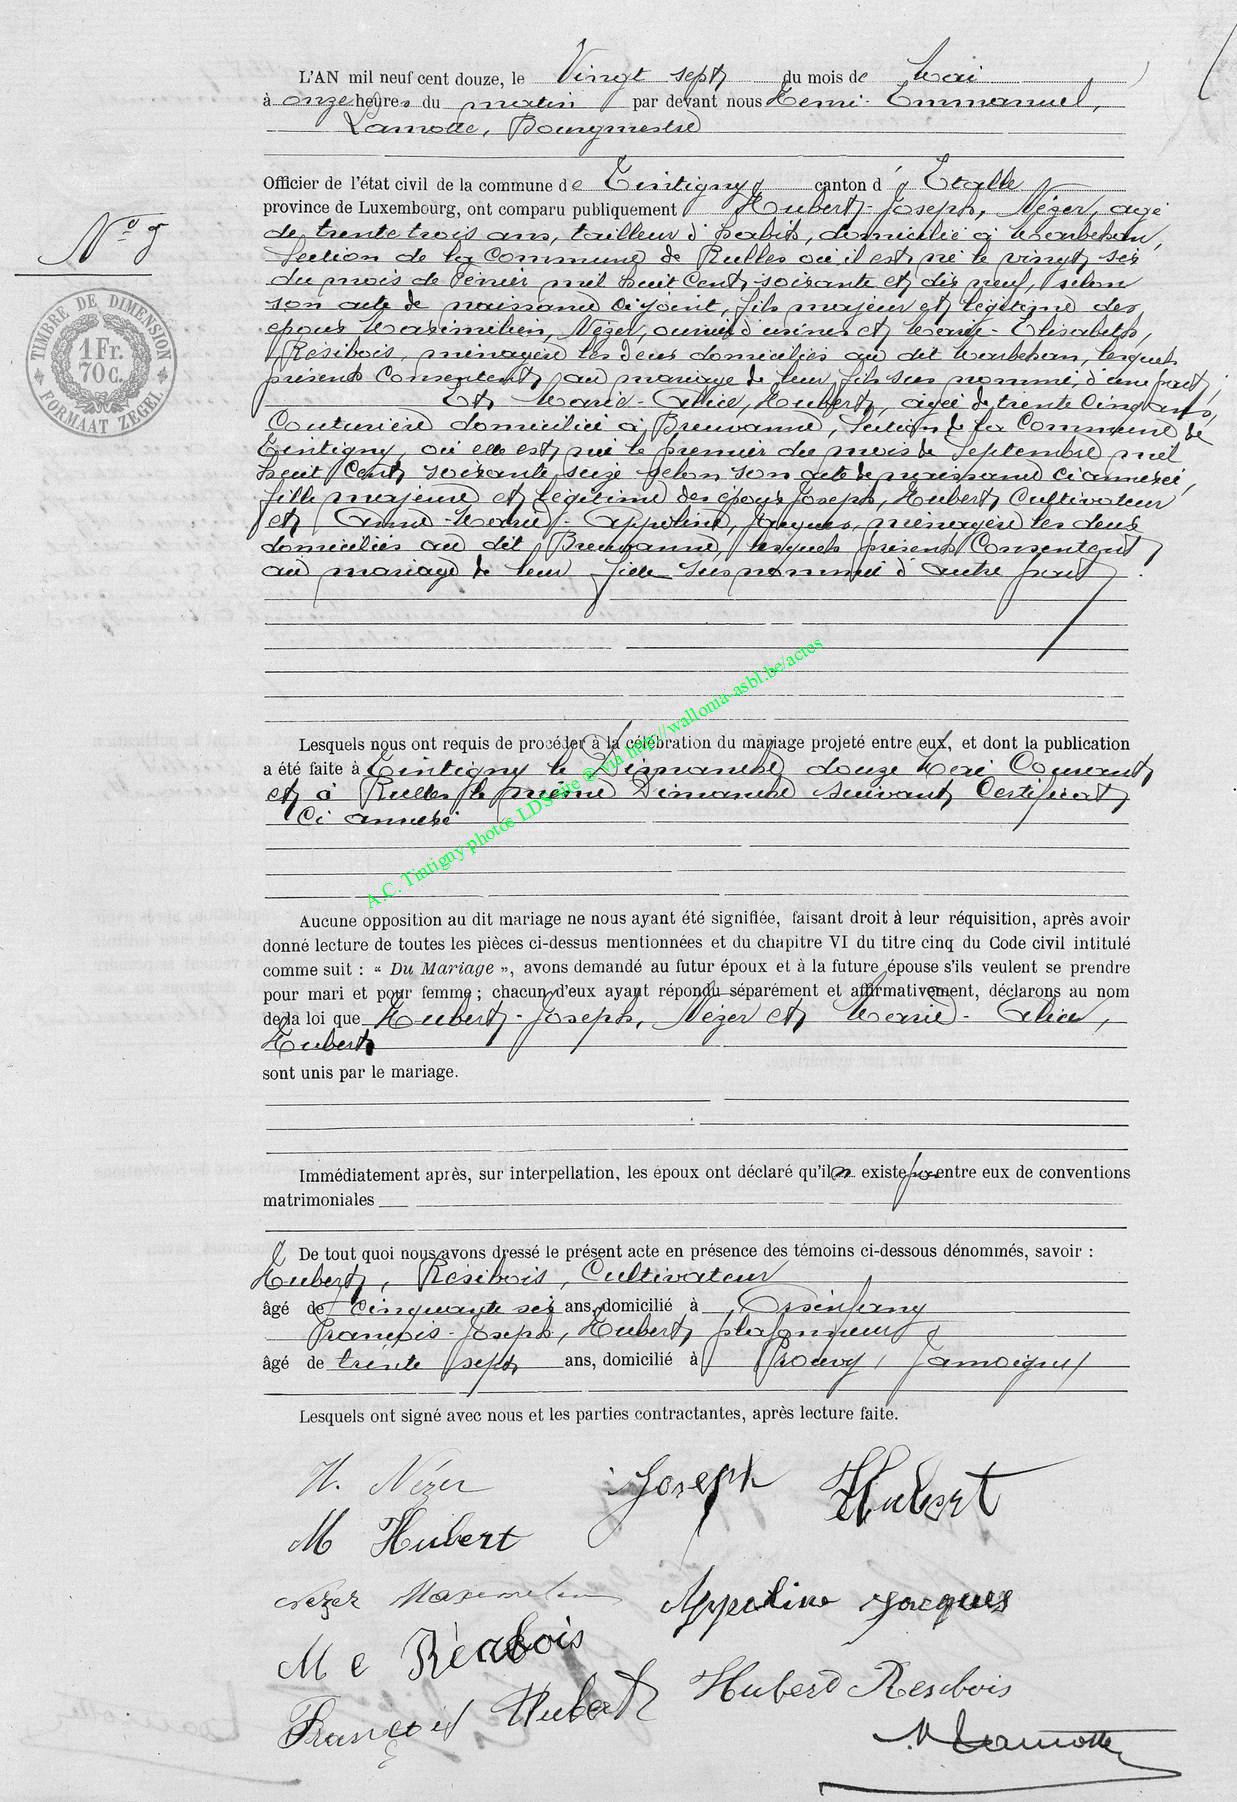 L'AN mil neuf cent douze, le Vingt sept du mois de Mai
à onze heures du matin par devant nous Henri-Emmanuel,
Lamotte, Bourgmestre
Officier de l'état civil de la commune de Tintigny canton d' Etalle
province de Luxembourg, ont comparu publiquement Hubert-Joseph, Nézer, agé
N° 9
de trente trois ans, tailleur d'habits, domicilié à Marbehan,
Section de la Commune de Rulles où il est né le vingt six
du mois de Février mil huit Cent soixante et dix neuf, selon
son acte de naissance ci joint, fils majeur et légitime des
époux Maximilien, Nézer, ouvrier d'usines et Marie-Elisabeth,
Résibois, ménagère les deux domiciliés au dit Marbehan, lesquels
présents Consentent au mariage de leur fils sus nommé, d'une part,
Et Marie-Alice, Hubert, agée de trente Cinq ans,
Couturière domiciliée à Breuvanne, Section de la Commune de
Tintigny, où elle est née le premier du mois de Septembre mil
huit Cent soixante seize selon son acte de naissance ci annexé,
fille majeure et légitime des époux Joseph, Hubert, Cultivateur
et Anne-Marie-Appoline, Jacques, ménagère les deux
domiciliés au dit Breuvanne, lesquels présents Consentent
au mariage de leur fille sus nommée d'autre part.
TIMBRE DE DIMENSION
1 Fr.
70 c.
FORMAAT ZEGEL
Lesquels nous ont requis de procéder à la célébration du mariage projeté entre eux, et dont la publication
a été faite à Tintigny le Dimanche douze Mai Courant
et à Rulles le même Dimanche suivant Certificat
Ci annexé
A.C. Tintigny photos LDS site @ via http://wallonia-asbl.be/actes
Aucune opposition au dit mariage ne nous ayant été signifiée, faisant droit à leur réquisition, après avoir
donné lecture de toutes les pièces ci-dessus mentionnées et du chapitre VI du titre cinq du Code civil intitulé
comme suit : « Du Mariage », avons demandé au futur époux et à la future épouse s'ils veulent se prendre
pour mari et pour femme ; chacun d'eux ayant répondu séparément et affirmativement, déclarons au nom
de la loi que Hubert-Joseph, Nézer et Marie-Alice,
Hubert
sont unis par le mariage.
Immédiatement après, sur interpellation, les époux ont déclaré qu'il n existe pas entre eux de conventions
matrimoniales
De tout quoi nous avons dressé le présent acte en présence des témoins ci-dessous dénommés, savoir :
Hubert, Résibois, Cultivateur
âgé de Cinquante six ans, domicilié à Orsinfaing
François-Joseph, Hubert, plafonneur
âgé de trente sept ans, domicilié à Prouvy, Jamoigne
Lesquels ont signé avec nous et les parties contractantes, après lecture faite.
H. Nézer Joseph Hubert
M Hubert
Nezer Maximilien Appoline Jacques
M E Résibois
François Hubert Hubert Resibois
Lamotte